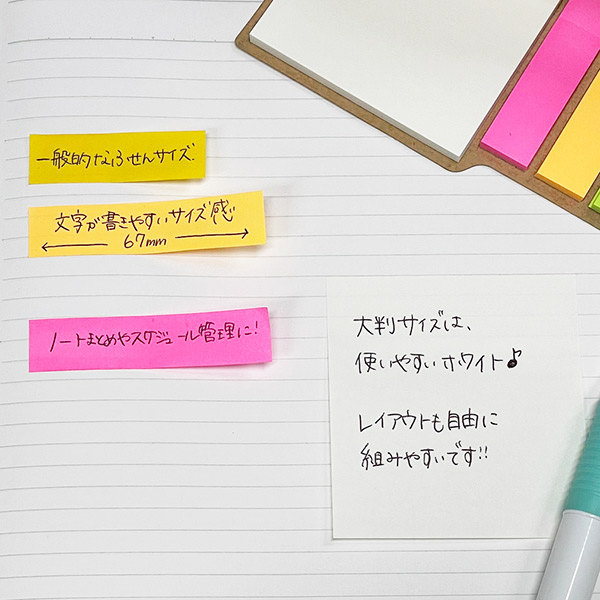 一般的なふせんサイズ.
文字が書きやすいサイズ感
67mm
ノートまとめやスケジュール管理に!
大判サイズは、
使いやすいホワイト♪
レイアウトも自由に
組みやすいです!!